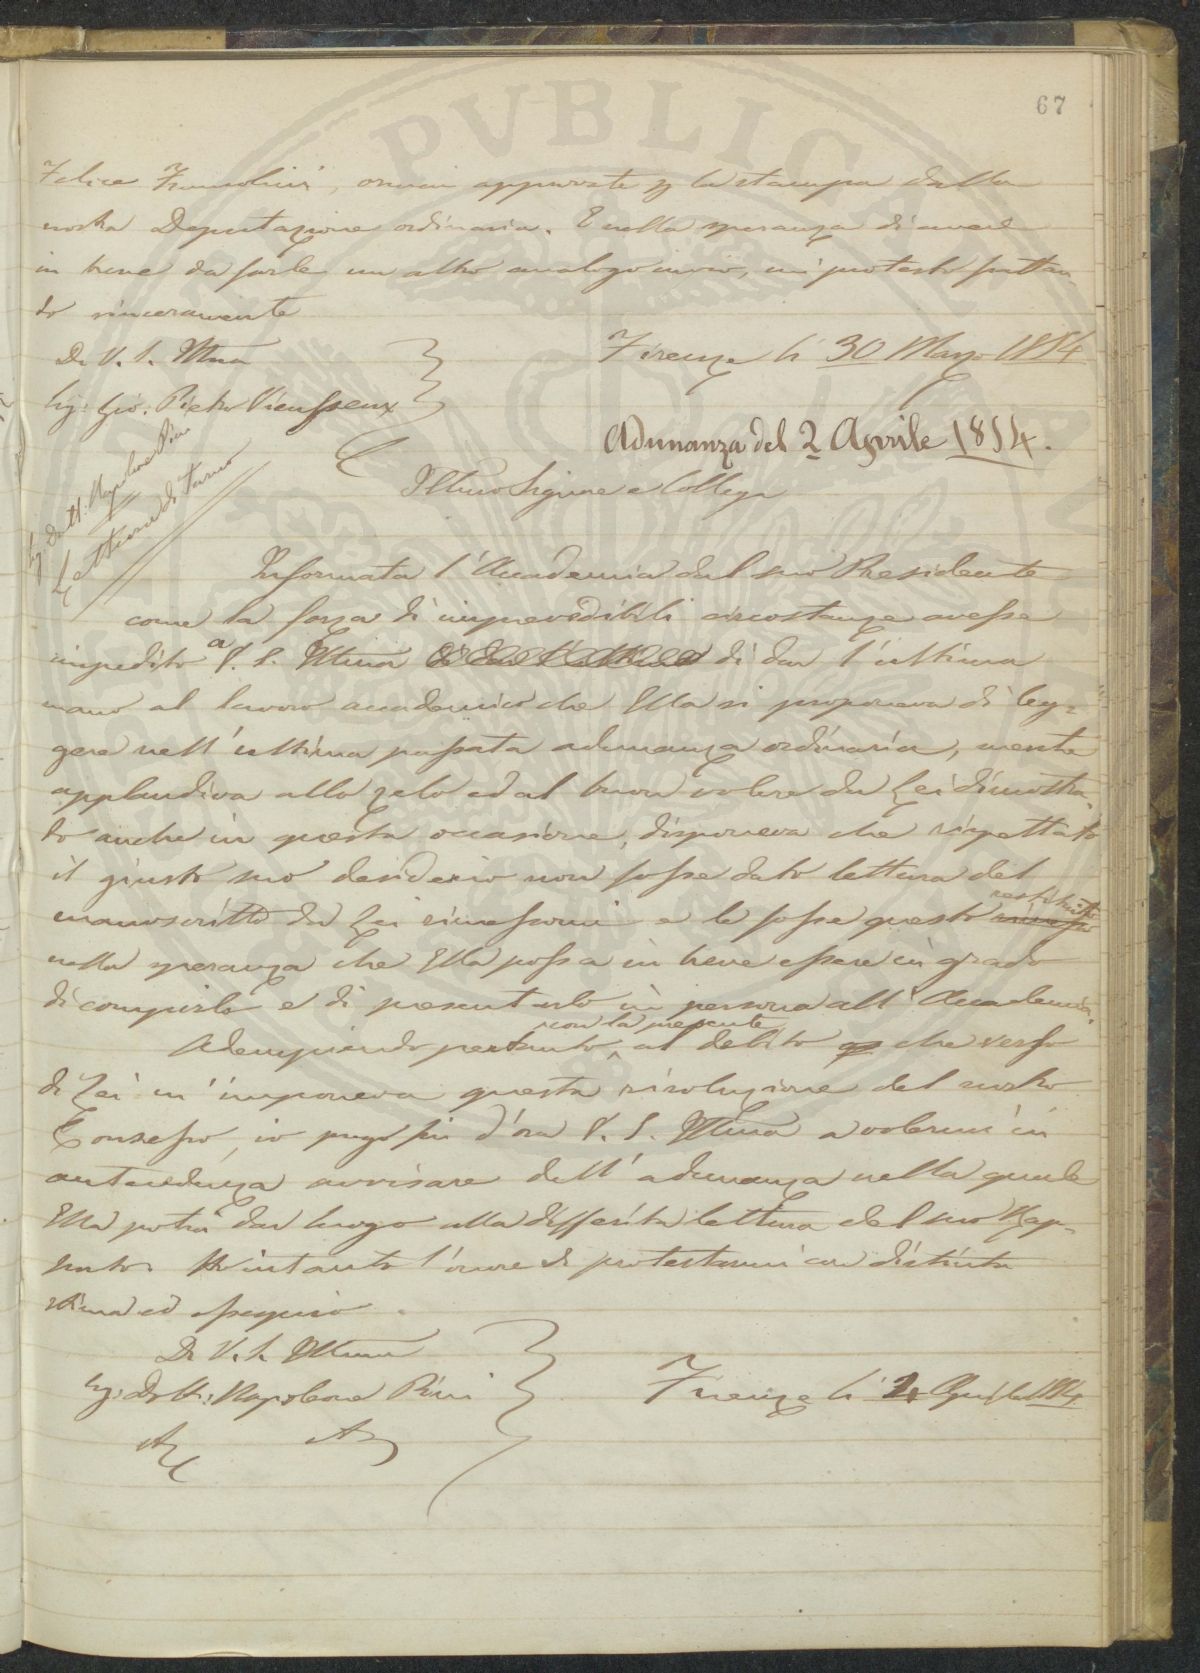 67
Felice Francolini, ormai approvate p la stampa dalla
nostra Deputazione ordinaria. E nella speranza di avere
in breve da farle un altro analogo invio, mi protesto frattan-
to sinceramente
Di V. S. Illma
Sig: Gio: Pietro Vieusseux
Firenze li 30 Marzo 1854
Adunanza del 2 Aprile 1854.
Sig. Dott: Napoleone Pini
Lettura di Turno
Illmo Signore e Collega
Informata l'Accademia dal suo Presidente
come la forza di imprevedibili circostanze avesse
impedito a V. S. Illma di dar l'ultima
mano al lavoro accademico che Ella si proponeva di leg-
gere nell'ultima passata adunanza ordinaria, mentre
applaudiva allo zelo ed al buon volere da Lei dimostra-
to anche in questa occasione, disponeva che rispettato
il giusto suo desiderio non fosse dato lettura del
manoscritto da Lei rimessomi e le fosse questo rimesso restituito
nella speranza che Ella possa in breve essere in grado
di compirlo e di presentarlo in persona all'Accademia.
Adempiendo pertanto con la presente al debito che verso
di Lei m'imponeva questa risoluzione del nostro
Consesso, io prego fin d'ora V. S. Illma a volermi in
antecedenza avvisare dell'adunanza nella quale
Ella potrà dar luogo alla differita lettura del suo Rap-
porto. Ho intanto l'onore di protestarmi con distinta
stima ed ossequio.
Di V. S. Illma
Sig: Dott: Napoleone Pini
Firenze li 4 Aprile 1854